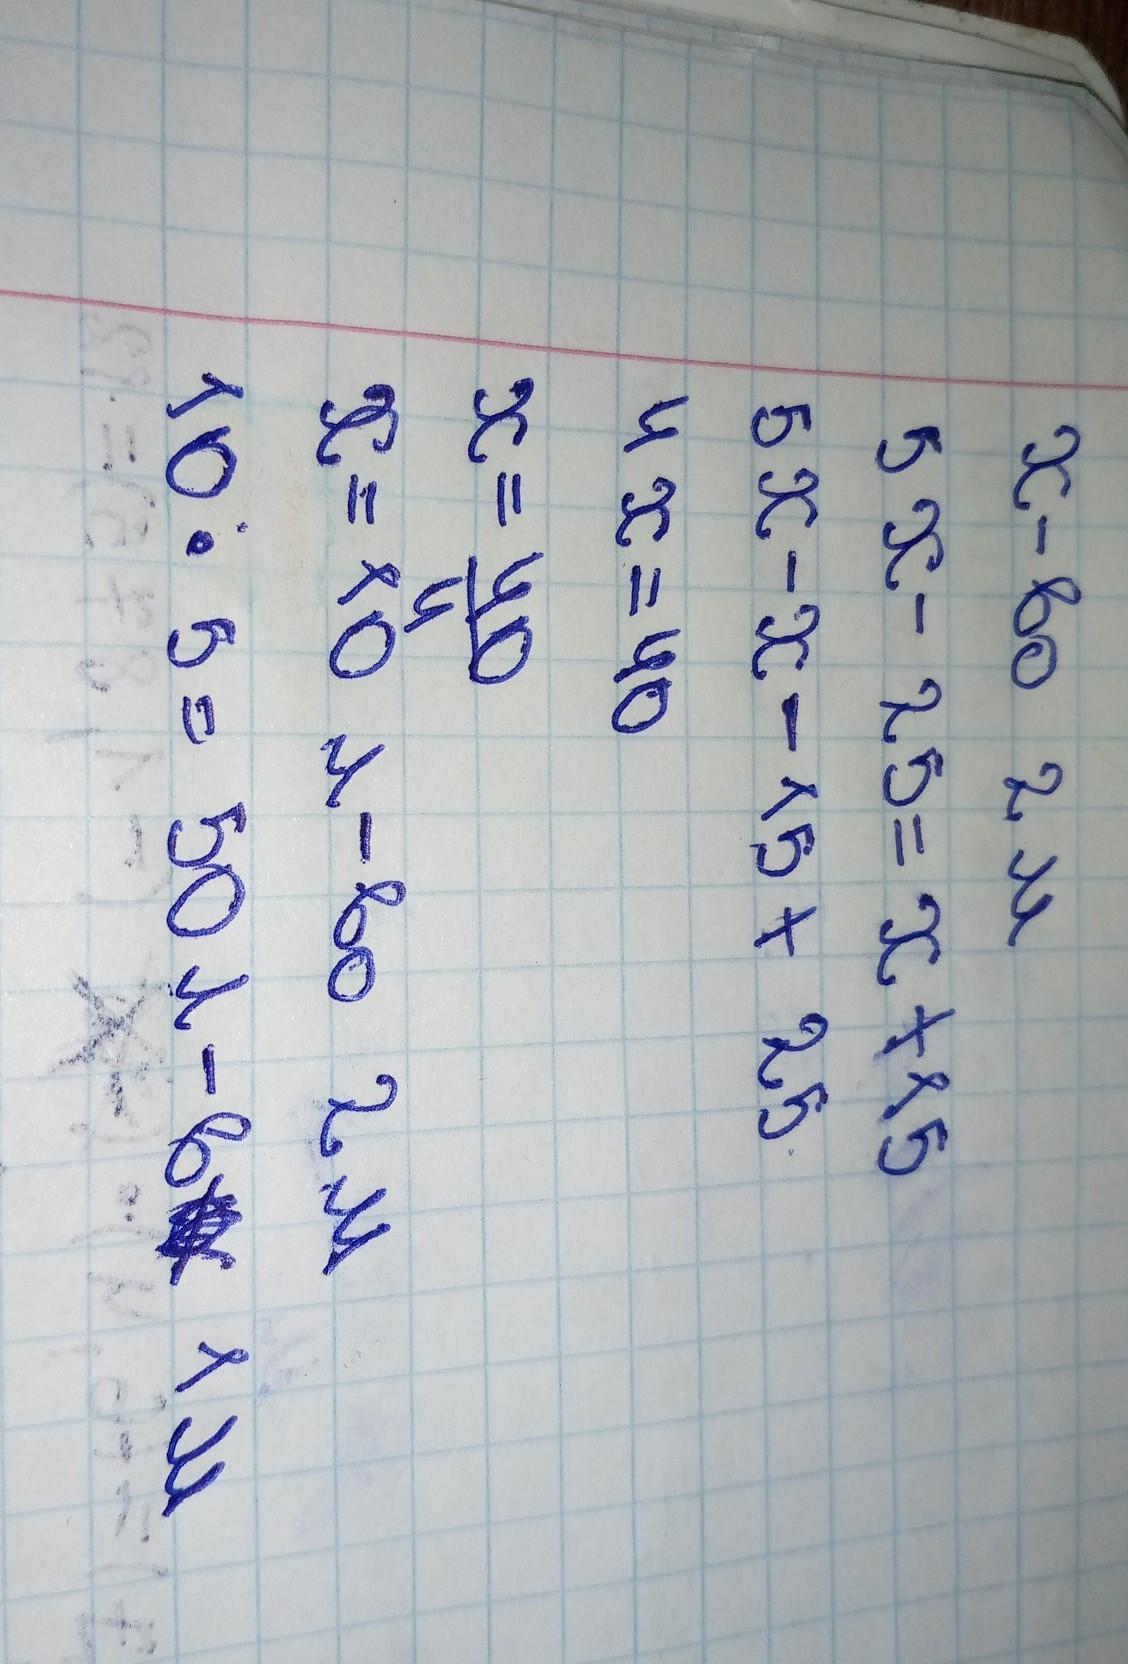 x - во 2 м
5x - 25 = x + 15
5x - x - 15 + 25
4x = 40
x = 40/4
x = 10 м - во 2 м
10 : 5 = 50 м - в 1 м